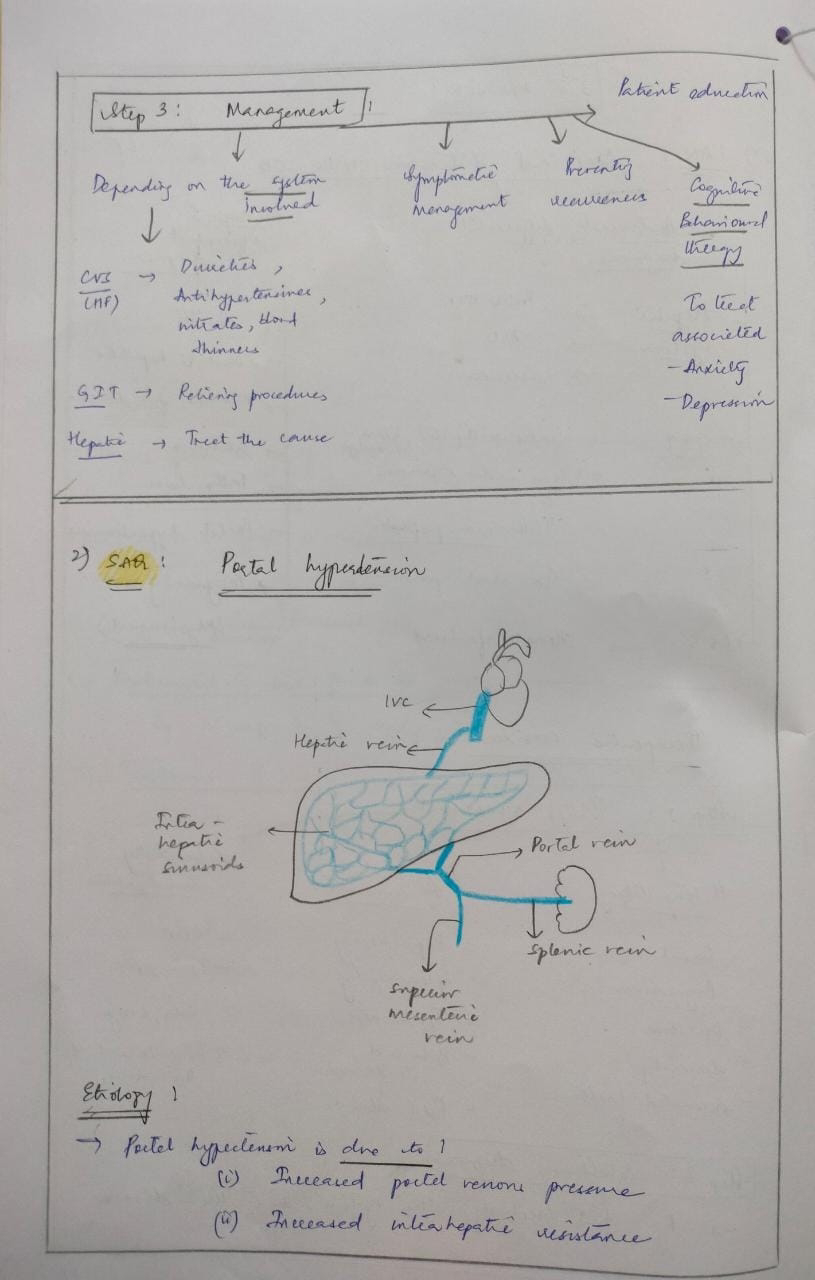 Step 3: Management:
Patient education
Depending on the system
involved
Symptomatic
Management
Preventing
recurrences
Cognitive
Behavioural
therapy
CVS → Diuretics,
(HF)
Antihypertensives,
nitrates, blood
thinners
GIT → Relieving procedures
Hepatic → Treat the cause
To treat
associated
- Anxiety
- Depression
2) SAQ: Portal hypertension
IVC
Hepatic vein
Intra-
hepatic
sinusoids
Portal vein
Splenic vein
Superior
mesenteric
vein
Etiology:
→ Portal hypertension is due to:
(i) Increased portal venous pressure
(ii) Increased intrahepatic resistance